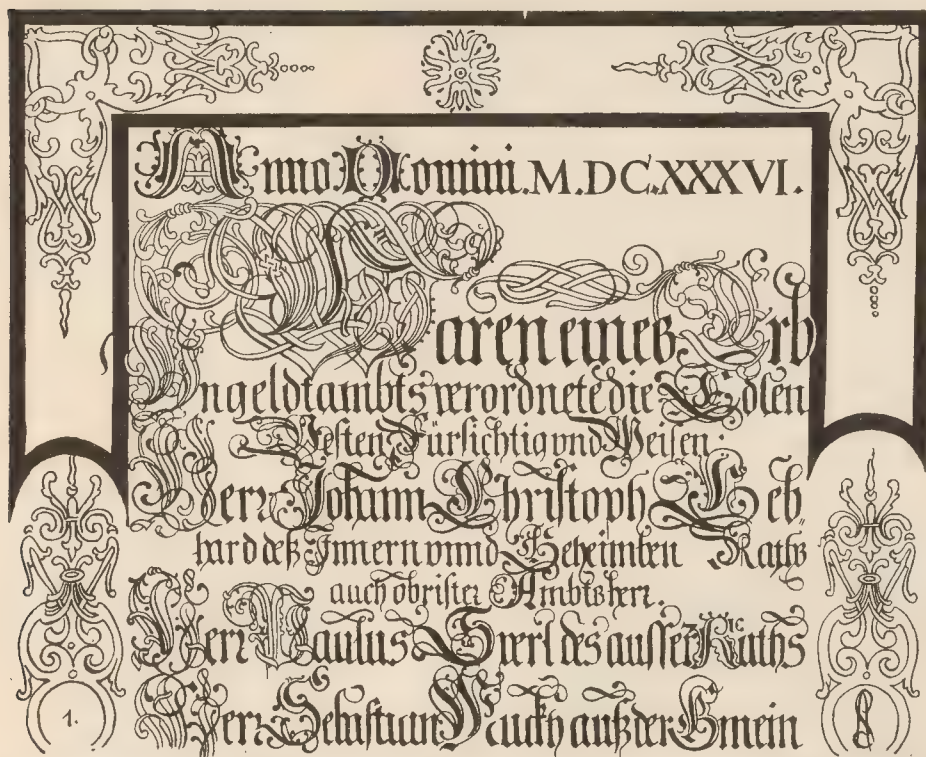 Anno Domini. M.DC.XXXVI.
Waren eines Erb
Ungeldtambts verordnete die Edlen
Vesten Fürsichtig vnd Weisen.
Herr Johann Christoph Leb
hard deß Innern vnnd Geheimben Raths
auch obrister Ambtsherr.
Herr Paulus des ausser Raths
Herr Sebastian auß der Gmein
1.